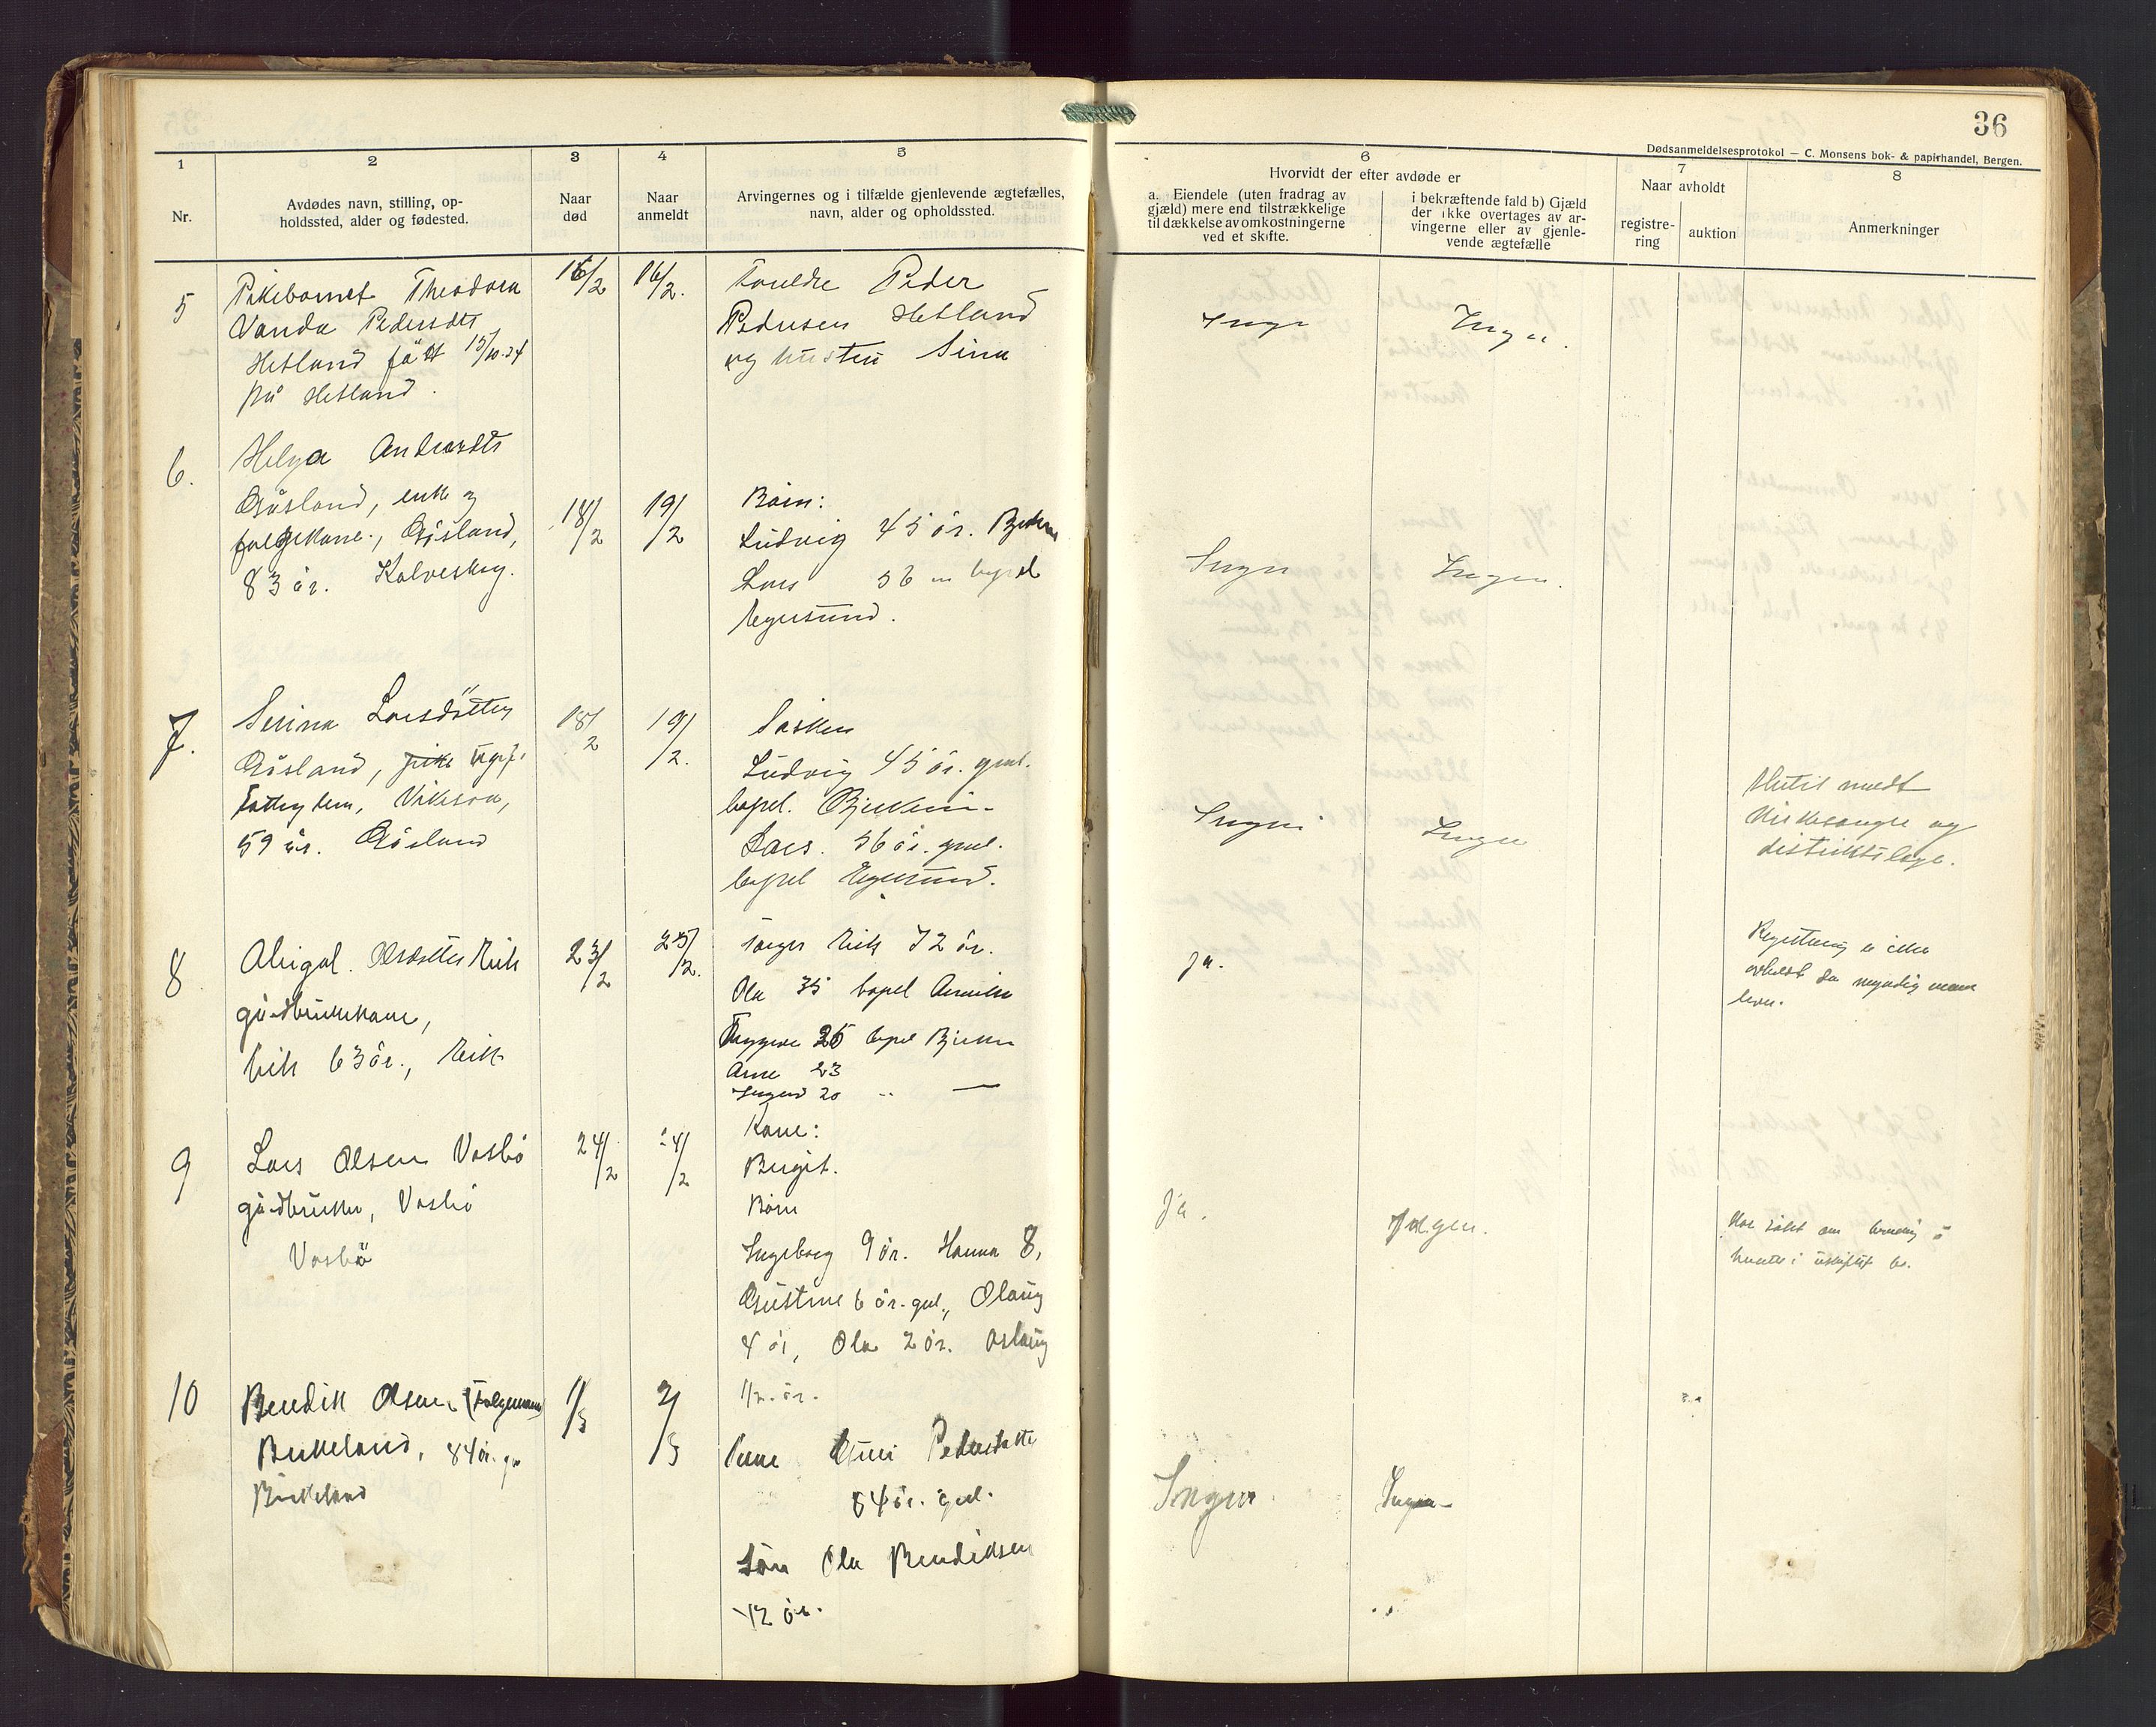 36
Dødsanmeldelsesprotokol — C. Monsens bok- & papirhandel, Bergen.
1
2
3
4
5
6
7
8
Nr.
Avdødes navn, stilling, op-
holdssted, alder og fødested.
Naar
død
Naar
anmeldt
Arvingernes og i tilfælde gjenlevende ægtefælles,
navn, alder og opholdssted.
Hvorvidt der efter avdøde er
a. Eiendele (uten fradrag av
gjæld) mere end tilstrækkelige
til dækkelse av omkostningerne
ved et skifte.
i bekræftende fald b) Gjæld
der ikke overtages av ar-
vingerne eller av gjenle-
vende ægtefælle
Naar avholdt
registre-
ring
auktion
Anmerkninger
5
Pikebarnet Theodora
Vanda Pedersdtr
Hetland født 15/10-34
på Hetland.
16/2
16/2.
Foreldre Peder
Pedersen Hetland
og hustru Sina
Ingen
Ingen.
6.
Helga Andreasdtr
Gåsland, enke og
folgekone., Gåsland,
83 år.
18/2
19/2
Børn:
Ludvig 45 år.
Lars 56 " bopel
Egersund.
Ingen
Ingen.
7.
Serina Larsdötter
Gåsland, pike
59 år. Gåsland
18/2
19/2.
Søsken
Ludvig 45 år. gml.
bopel. Bjerkreim.
Lars. 56 år. gml.
bopel Egersund.
Ingen
Ingen
Attest meldt
kirkesanger og
distriktslege.
8
Abigal. Olsdatter Eik
gårdbrukerkone,
Eik 63 år., Eik
23/2
25/2.
Eik 72 år.
Ola 35 bopel
Trygve 26 bopel
Arne 23
20 " —
Ja.
Registrering er ikke
avholdt da myndig
lever.
9
Lars Olsen Vasbö
gårdbruker, Vasbö
Vasbö
24/2
24/2
Kone:
Bergit.
Børn
Ingeborg 9 år. Hanna 8,
Gustine 6 år. gml., Olaug
4 år, Ola 2 år. Aslaug
1/2 år.
Ja.
Ingen.
Har søkt om å
i uskiftet bo.
10
Bendik Olsen, (Folgemann)
Birkeland, 84 år. gml
Birkeland
1/3
2/3
Pedersdatter
84 år. gml.
Søn Ola Bendiksen
42 år.
Ingen
Ingen